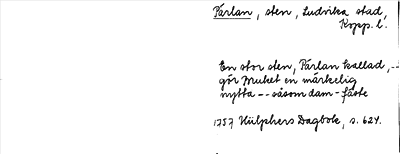 Pärlan, sten, Ludvika stad,
Kopp. l.
En stor sten, Pärlan kallad, --
gör Bruket en märkelig
nytta -- såsom dam-fäste
1757 Hülphers Dagbok, s. 624.